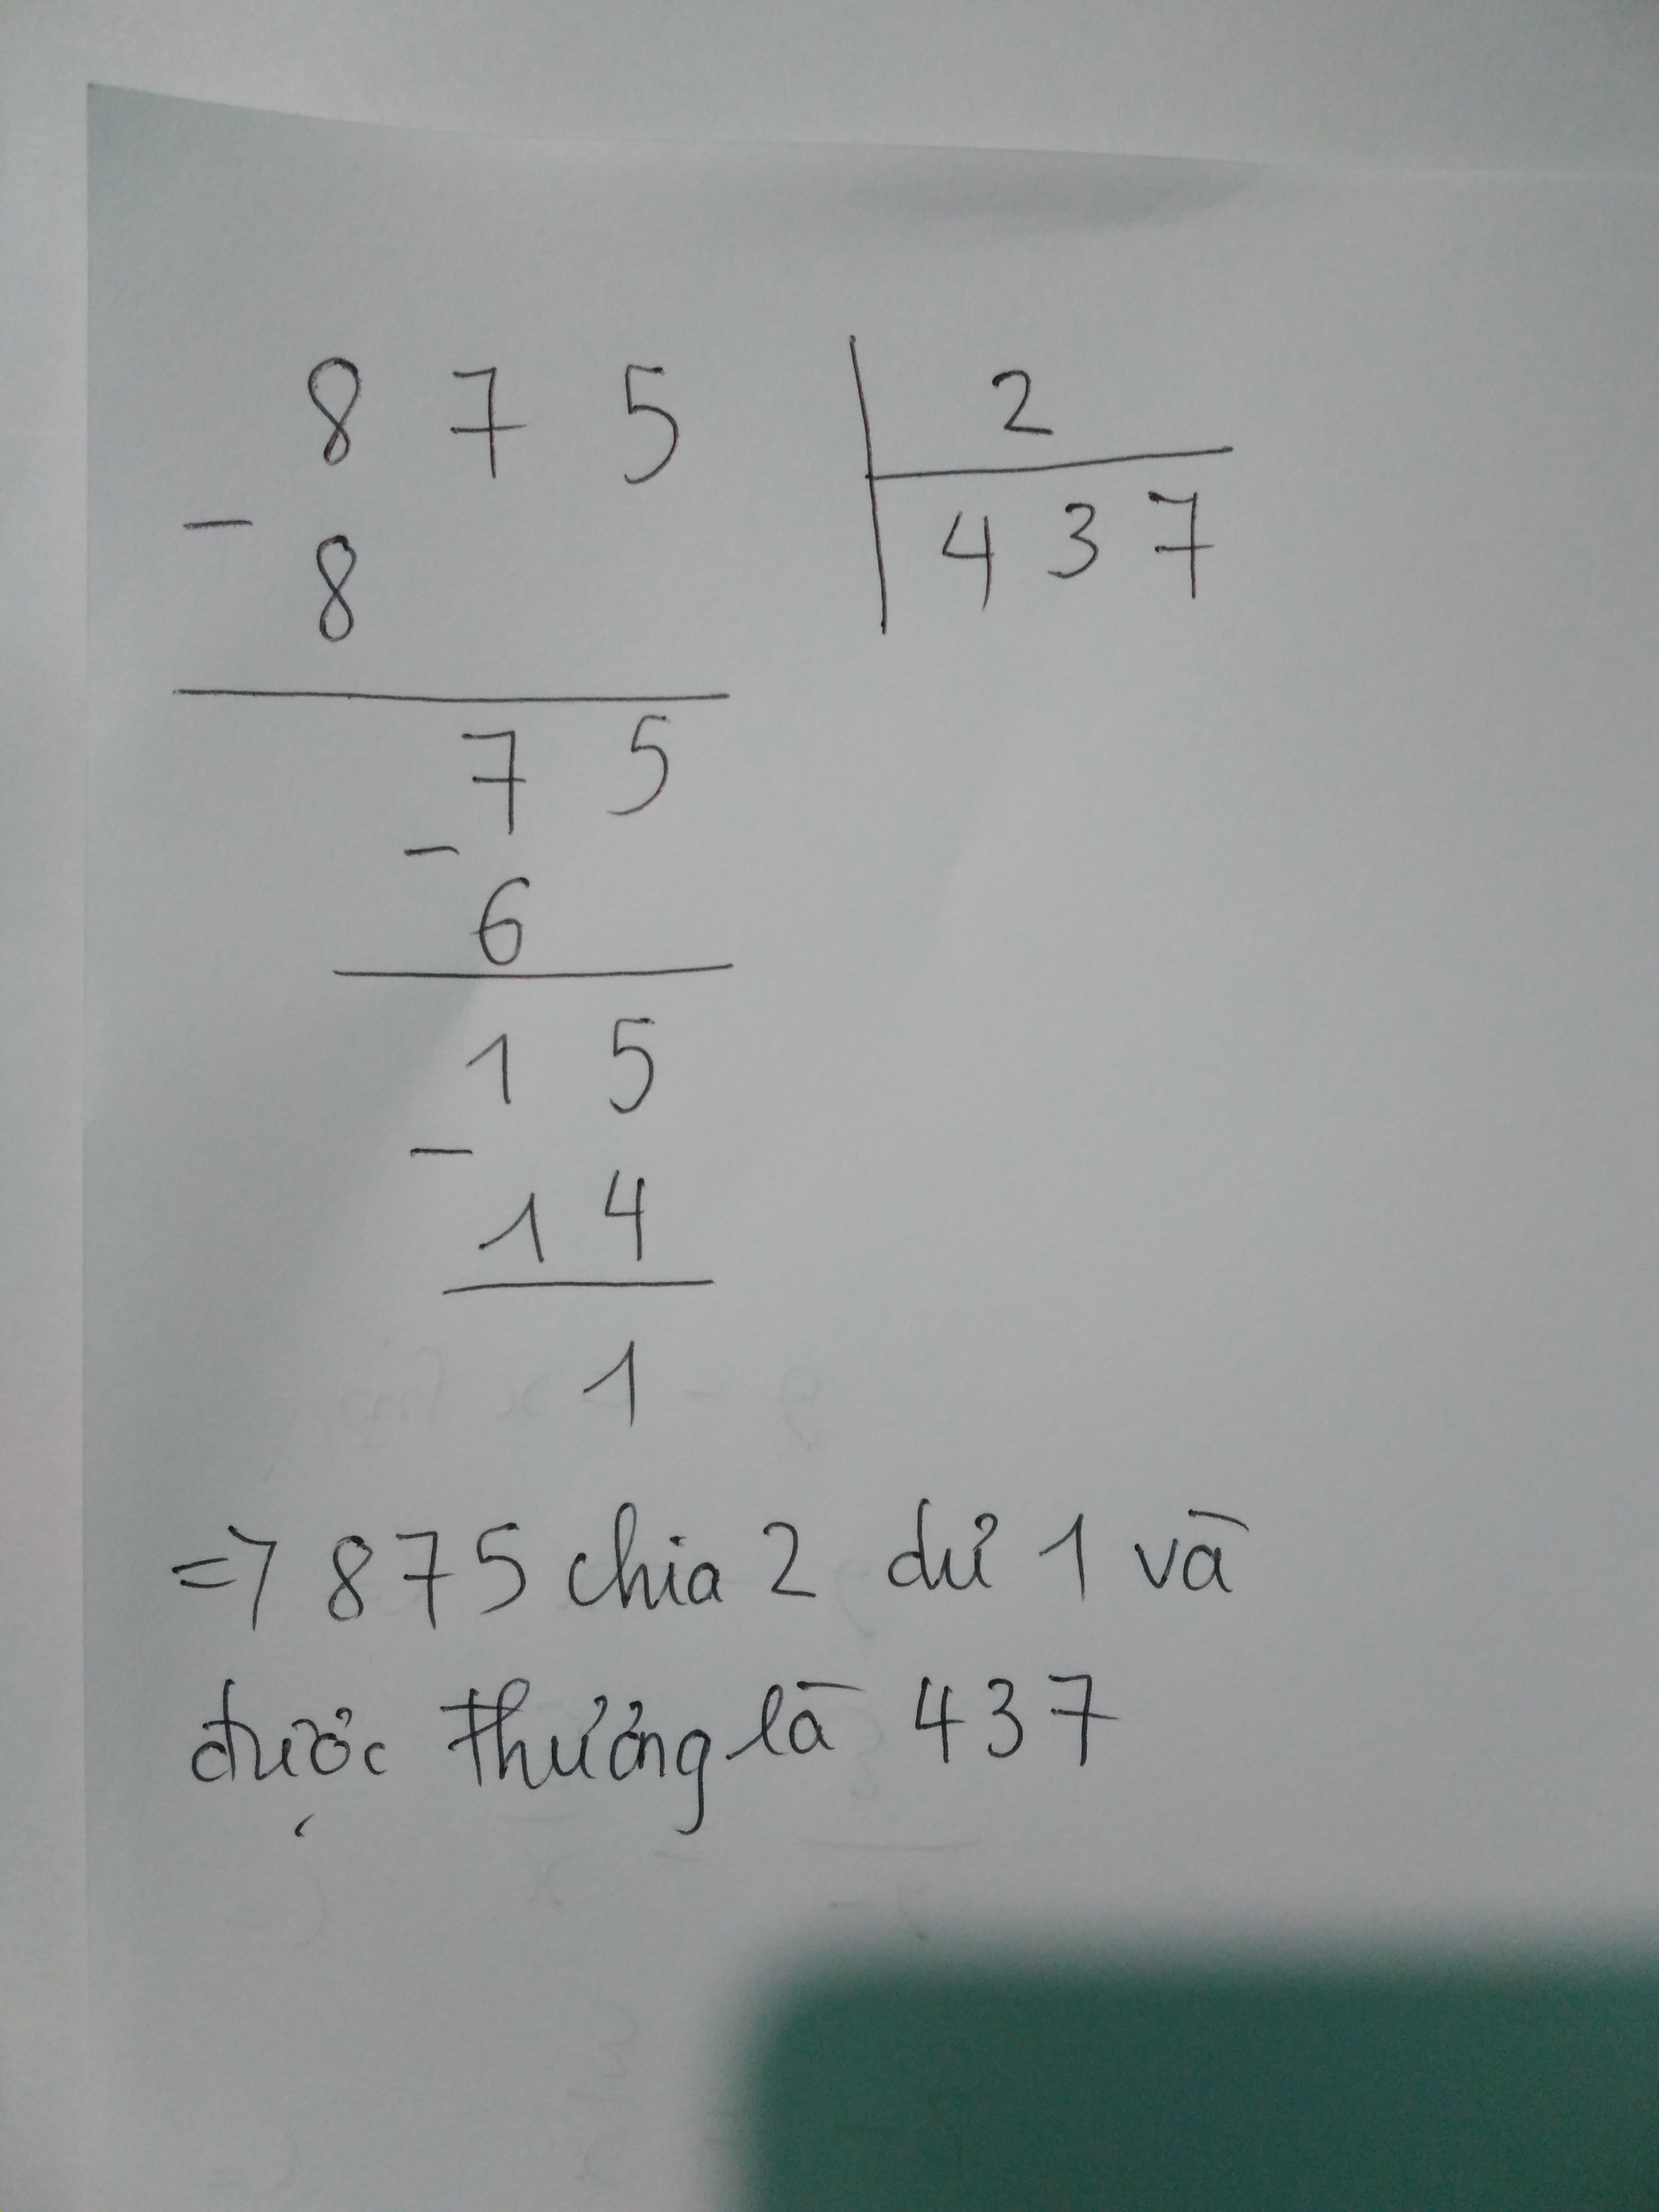 8 7 5 2
- 8 4 3 7
7 5
-
6
1 5
-
1 4
1
=> 875 chia 2 dư 1 và
được thương là 437